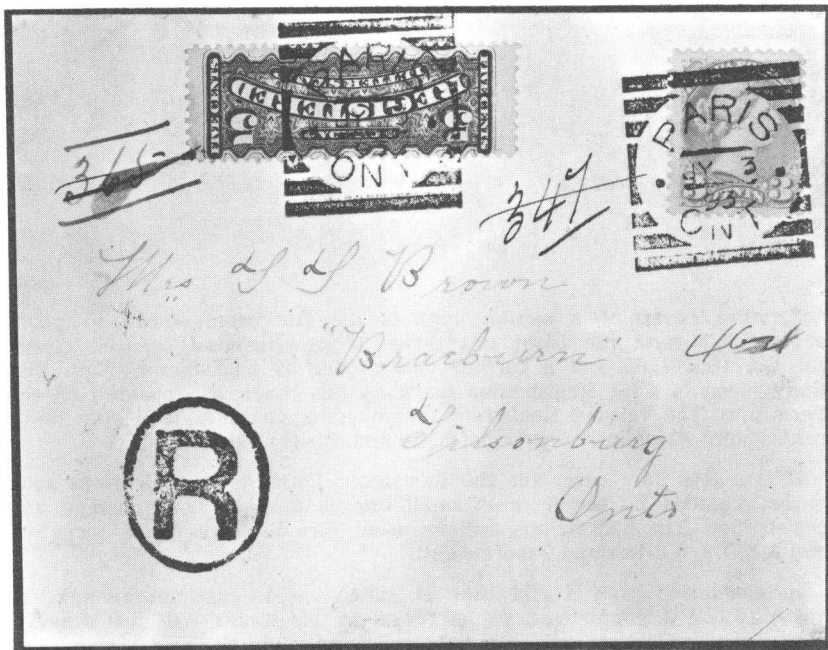 FIVE CENTS REGISTERED 5 5 FIVE CENTS
PARIS
ONT
PARIS
3
93
ONT
365
347
Mrs L L Brown
"Braeburn" 464
Tilsonburg
Onts
R